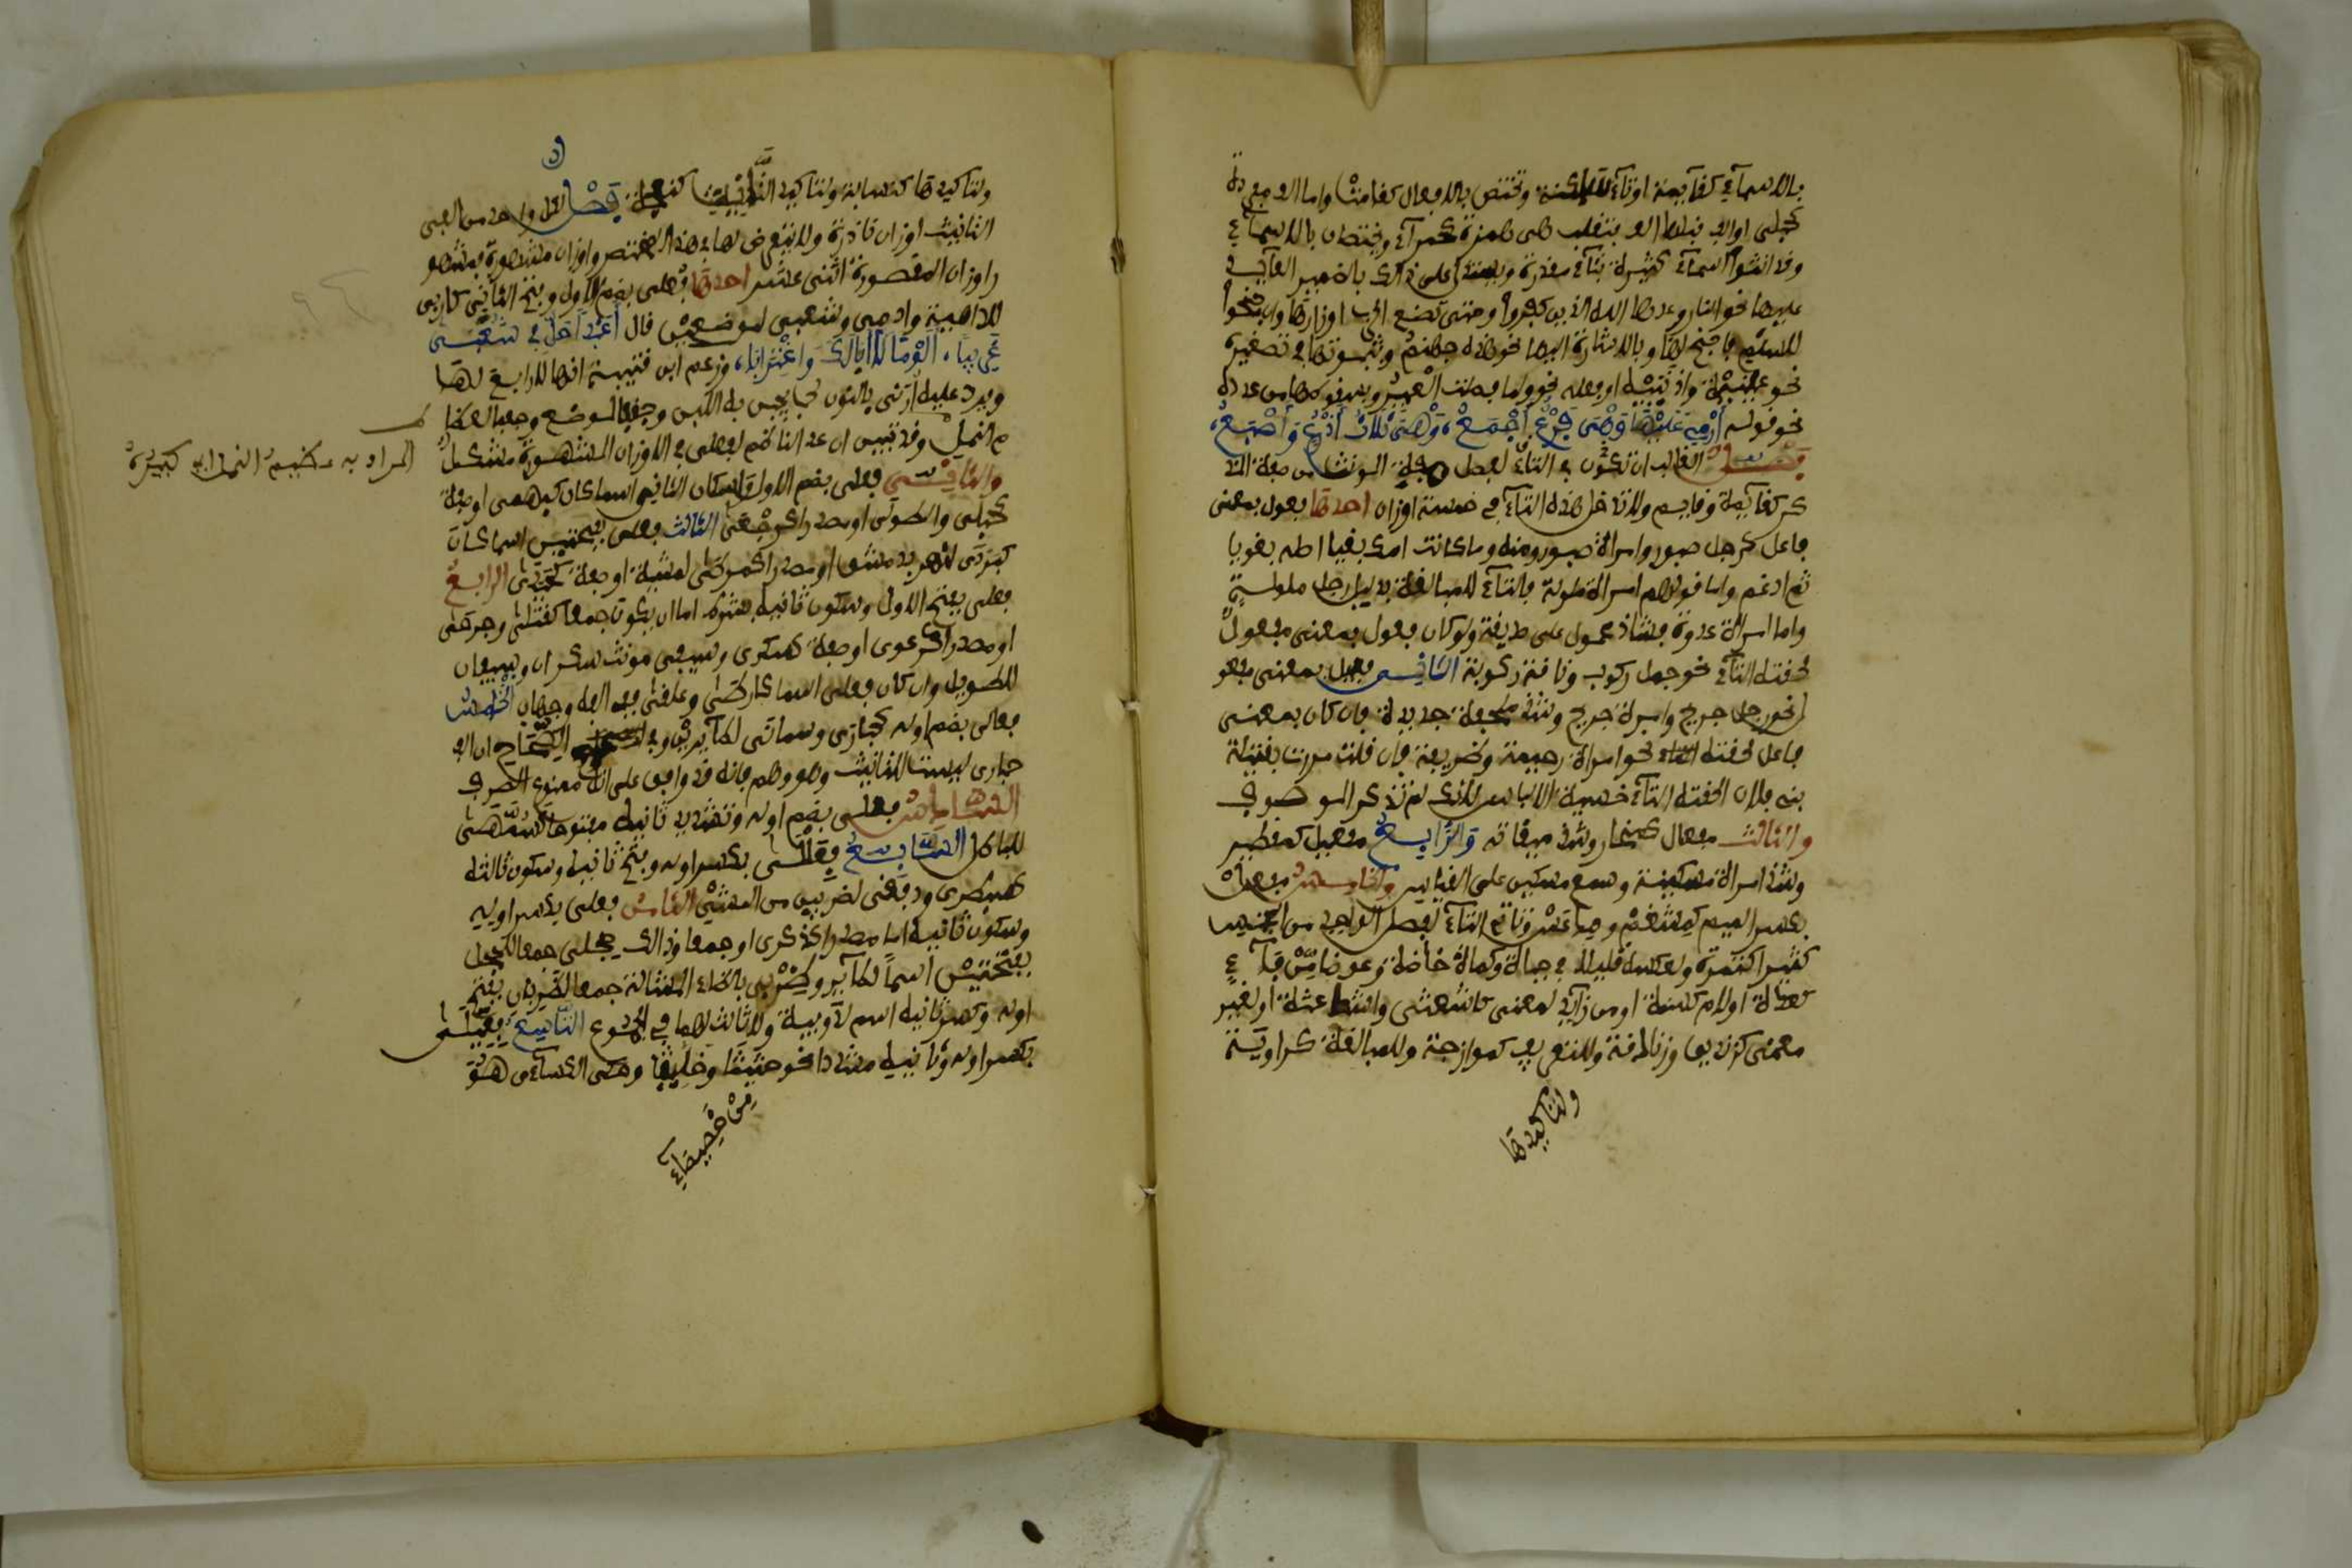 بالاسمآء كقآيمة اوتآء ساكنة وتختص بالافعال كقامت واما الف مفردة
كحبلى او الف قبلها الف فتقلب هى همزة كحمرآء ويختصان بالاسمآء
وقد انثوا اسمآء كثيرة بتآء مقدرة ويستدل على ذالك بالضمير العآيد
عليها نحو النار وعدها الله الذين كفروا وحتى تضع الحرب اوزارها وان جنحوا
للسلم فاجنح لها وبالاشارة اليها نحو هذه جهنم وثبوتها في تصغيره
نحو عيينة واذينة او فعله نحو ولما فصلت العير وبسقوطها من عدده
نحو قوله أرمي عليها وهي فرع أجمع، وهي ثلاث أذرع وأصبع،
فصل الغالب ان تكون في التاء لفصل صفة المونث من صفة المذ
كر كقآيمة وقايم ولا تدخل هذه التآء في خمسة اوزان احدها فعول بمعنى
فاعل كرجل صبور وامراة صبور ومنه وما كانت امك بغيا اصله بغويا
ثم ادغم واما قولهم امراة ملولة فالتآء للمبالغة بدليل رجل ملولة
واما امراة عدوة فشاذ محمول على صديقة ولو كان فعول بمعنى مفعول
لحقته التآء نحو جمل ركوب وناقة ركوبة الثاني فعيل بمعنى مفعو
ل نحو رجل جريح وامراة جريح وشذ ملحفة جديدة فان كان بمعنى
فاعل لحقته التاء نحو امراة رحيمة وظريفة فان قلت مررت بقتيلة
بني فلان الحقته التآء خشية الالباس لانك لم تذكر الموصوف
والثالث مفعال كمنحار وشذ ميقانة والرابع مفعيل كمعطير
وشذ امراة مسكينة وسمع مسكين على القياس والخامس مفعل
بكسر الميم كمغشم ومدعس وتاتي التآء لفصل الواحد من الجنس
كثيرا كتمرة ولعكسه قليلا في جباة وكماة خاصة وعوضا من فآء
كعدة او لام كسنة او من زآيد لمعنى كاشعثى واشاعثة او لغير
معنى كزنديق وزنادقة وللتعريب كموازجة وللمبالغة كراوية
ولتاكيدها
ولتاكيدها كنسابة ولتاكيد التأنيث كنعجة فصل لكل واحد من الفي
التانيث اوزان نادرة ولا نتعرض لها في هذا المختصر واوزان مشهورة فمشهو
ر اوزان المقصورة اثنى عشر احدها فعلى بضم الاول وفتح الثاني كاربى
للداهية وادمى وشعبى لموضعين قال أعبدا حل في شعبى
غريبا، ألؤما لا أبا لك واغترابا، وزعم ابن قتيبة انها لا رابع لها
ويرد عليه أرنى بالنون لحب يجبن به اللبن وجنفى لموضع وجعبى لعظا
م النمل وقد تبين ان عد الناظم لفعلى في الاوزان المشهورة مشكل
والثاني فعلى بضم الاول واسكان الثاني اسما كان كبهمى او صفة
كحبلى والطولى او مصدرا كرجعى الثالث فعلى بفتحتين اسما كان
كبردى لنهر بدمشق او مصدرا كمرطى لمشية او صفة كحيدى الرابع
فعلى بفتح الاول وسكون ثانيه بشرط اما ان يكون جمعا كقتلى وجرحى
او مصدرا كدعوى او صفة كسكرى وسيفى مونث سكران وسيفان
للطويل وان كان فعلى اسما كارطى وعلقى ففي الفه وجهان الخامس
فعالى بضم اوله كحبارى وسمانى لطآيرين وفي الصحاح ان الف
حبارى ليست للتانيث وهو وهم فانه قد وافق على انه ممنوع الصرف
السادس فعلى بضم اوله وتشديد ثانيه مفتوحا كسمهى
للباطل السابع فعلى بكسر اوله وفتح ثانيه وسكون ثالثه
كسبطرى ودفقى لضربين من المشي الثامن فعلى بكسر اوله
وسكون ثانيه اما مصدرا كذكرى او جمعا وذالك حجلى جمعا للحجل
بفتحتين اسما لطآير وظربى بالظاء المشالة جمعا لظربان بفتح
اوله وكسر ثانيه اسم لدويبة ولا ثالث لهما في الجموع التاسع فعيلى
بكسر اوله وثانيه مشددا نحو حثيثى وخليفى وحكى الكسآءى هو
من خصيصاء
المراد به عظيم النمل اي كبيرة